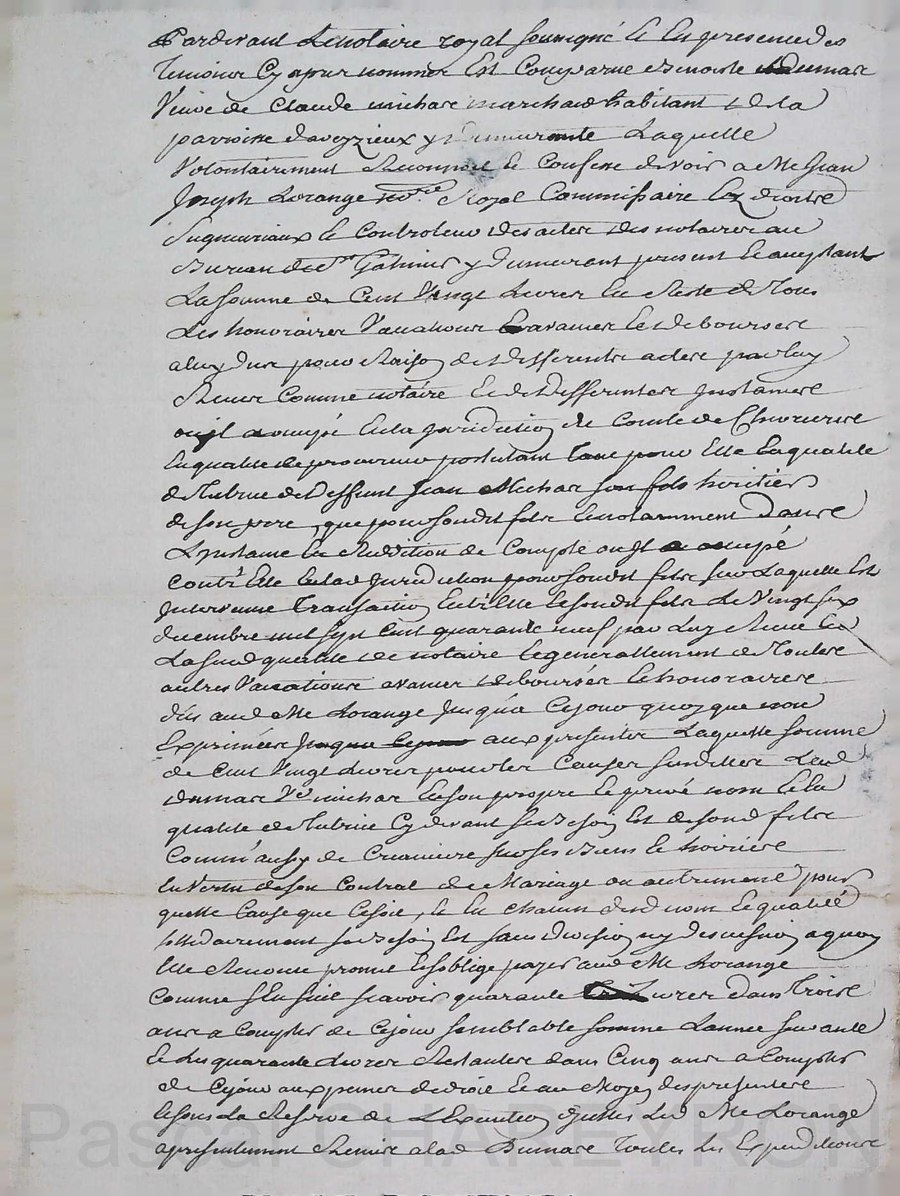 Pardevant Le notaire royal soussigné et En presence des
Temoins Cy apres nommés Est Comparue Benoiste Dumas
Veuve de Claude michas marchand habitant de la
parroisse daveyzieux y demurante Laquelle
Volontairement Reconnoit et Confesse devoir a Me Jean
Joseph Lorange nore Royal Commissaire Ez droits
Seigneuriaux et Controleur des actes des notaires au
Bureau de St Galmier y demurant present Et acceptant
La somme de Cent Vingt Livres En Reste de Tous
Les honoraires Vacations Et avances Et debourses
a luy dus pour Raison de differents actes par luy
Recus Comme notaire Et de differentes Instances
ou Il a occupé En la Juridiction du Comté de
En qualité de procureur postulant Tant pour Elle En qualité
de Tutrice de Deffunt Jean Michas son fils heritier
de son pere, que pour sondit fils Et notamment Dans
L'instance En Reddition de Compte ou Il a occupé
Contre Elle En lad Juridiction pour sondit fils sur Laquelle Est
Intervenue Transaction Entre Elle Et sondit fils Le Vingt six
decembre mil sept Cent quarante neuf par Luy Recue En
La susd qualité de notaire Et generallement de Toutes
autres Vacations avances debourses Et honoraires
dus aud Me Lorange Jusqua Ce jour quoy que non
Exprimées aux presentes Laquelle somme
de Cent Vingt Livres pour les Causes susdittes Lad
Dumas Ve michas En son propre Et privé nom Et En
qualité de Tutrice Cy devant de sond fils
Comm'aussy de Creanciere sur ses Biens Et hoirie
En Vertu de son Contrat de Mariage ou autrement pour
quelle Cause que Ce soit, Et En Chacun desd noms Et qualité
sollidairement sans division ny discussion a quoy
Elle Renonce promet Et soblige payer aud Me Lorange
Comme sEnsuit scavoir quarante Livres Dans Trois
ans a Compter de Ce jour semblable somme Lannée suivante
Et Les quarante Livres Restantes dans Cinq ans a Compter
de Ce jour aux peines de droit Et au Moyen des presentes
Et sous La Reserve de LExecution dycelles Led Me Lorange
a presentement Remis a lad Dumas Toutes Les Expeditions
Pascal CHAREYRON